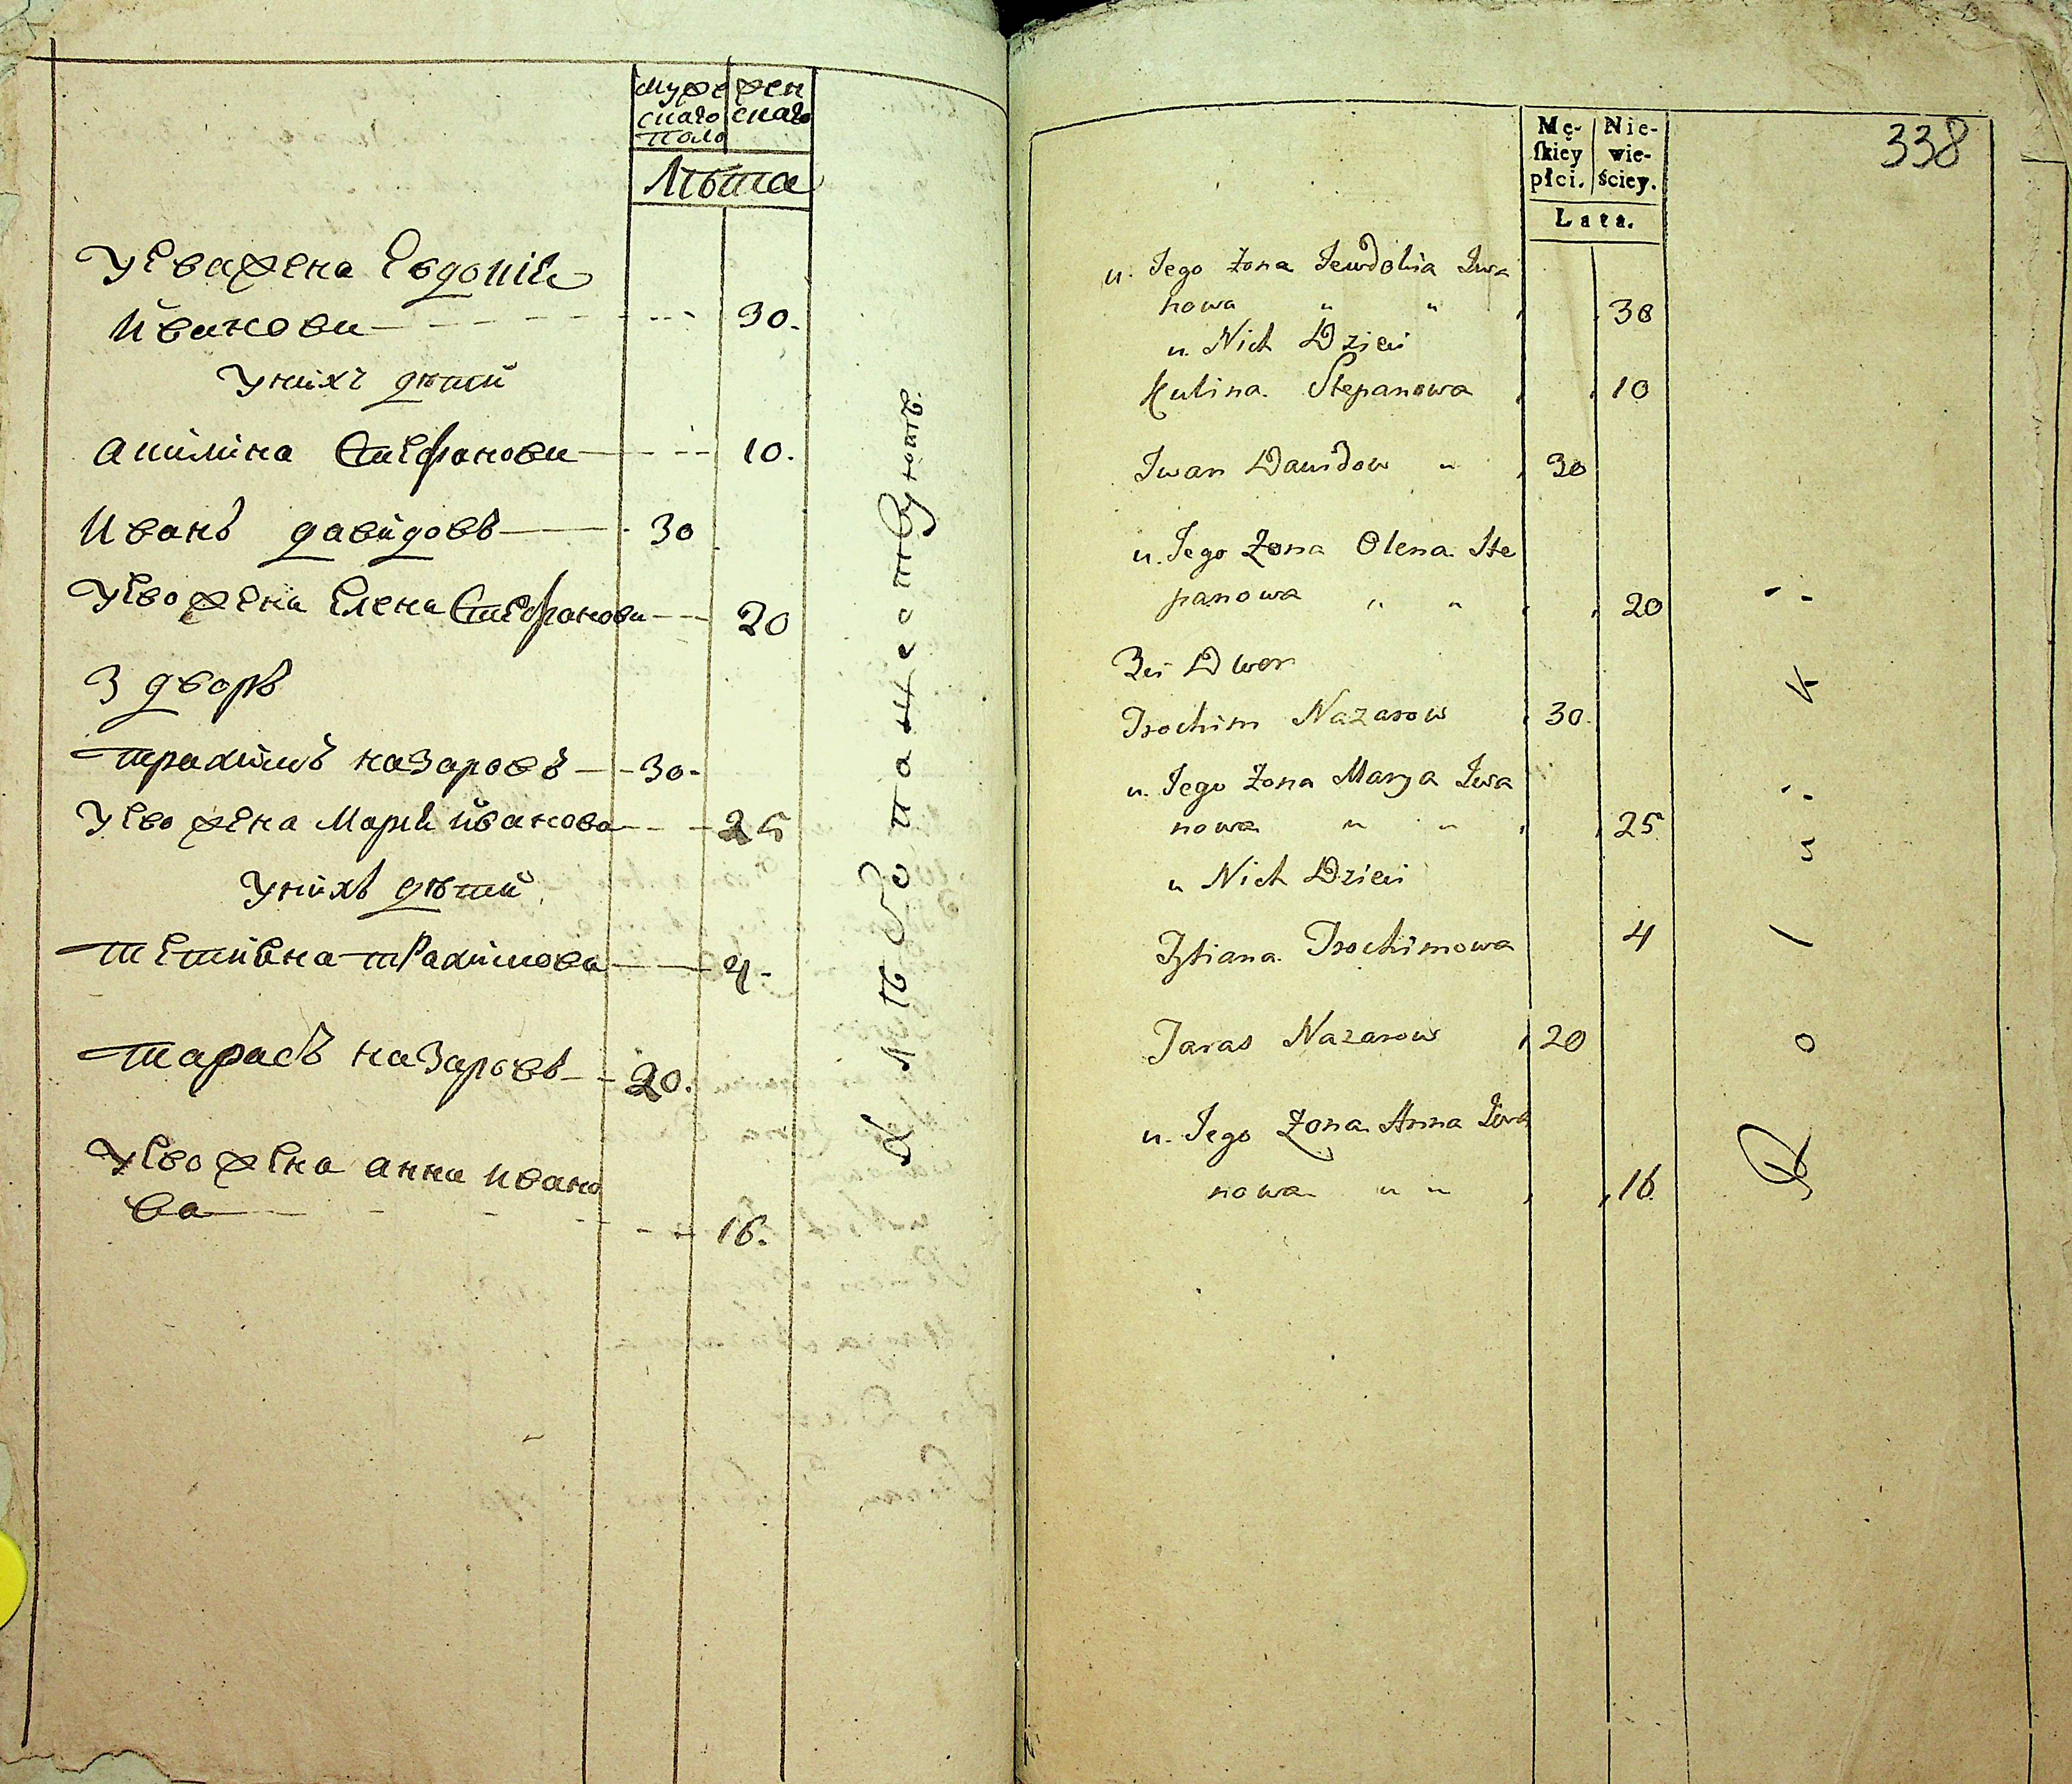 муже
скаго
полу
жен
скаго
Лѣта
У ево жена Евдокiя
Иванова 30.
У нихъ дѣтей
Акилина Стефанова 10.
Иванъ Давидовъ 30
У ево жена Елена Стефанова 20
3 дворъ
Трахимъ Назаровъ 30.
У ево жена Марiя Иванова 25
У нихъ дѣтей
Трахимова 4.
Тарасъ Назаровъ 20.
У ево жена Анна Ивано
ва 16.
338
Mę-
ſkiey
płci.
Nie-
wie-
ściey.
Lata.
u. Jego Żona Jewdokia Iwa
nowa " " 30
u. Nich Dzieci
Kulina Stepanowa 10
Iwan Dawidow " 30
u. Jego Żona Olena Ste
panowa " " 20
3ci Dwor
Trochim Nazarow 30.
u. Jego Żona Marya Iwa
nowa " " 25
u Nich Dzieci
Tytiana Trochimowa 4
Taras Nazarow 20
u. Jego Żona Anna Iwa
nowa " " 16